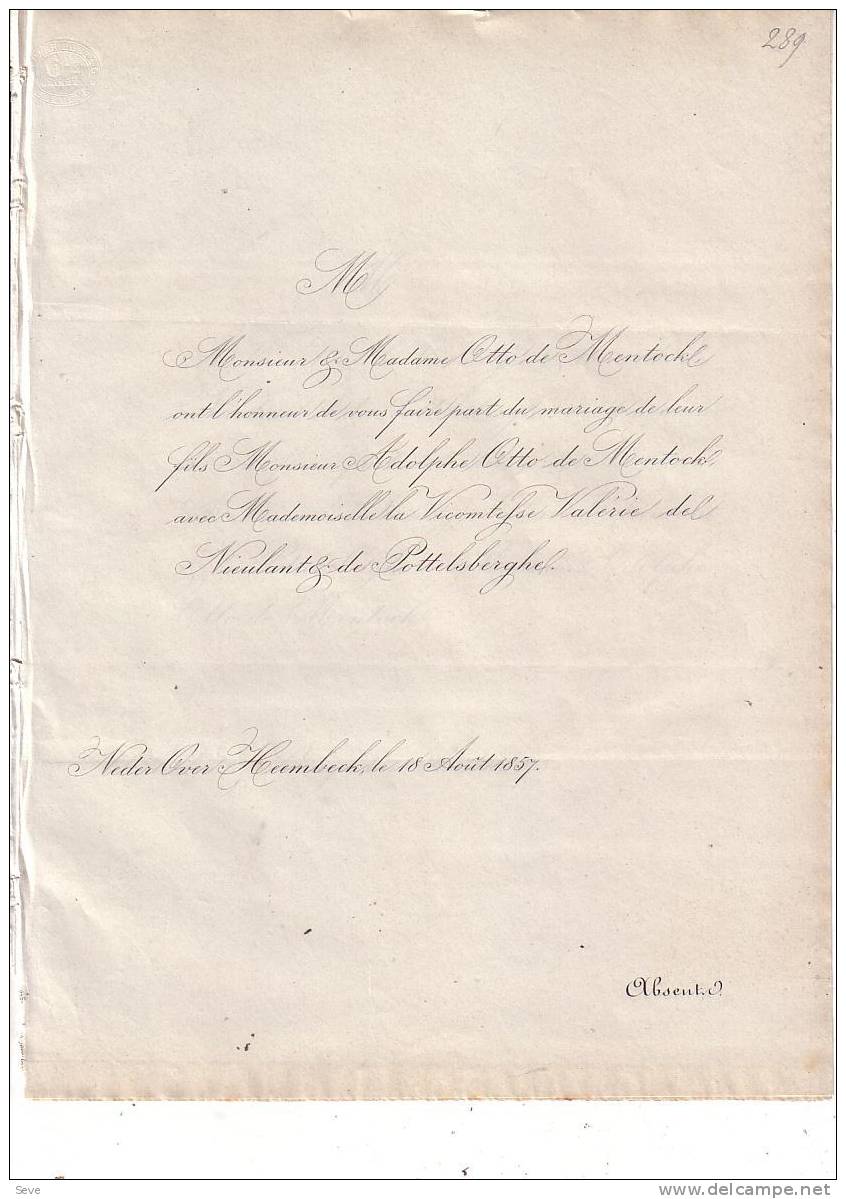 289
M
Monsieur & Madame Otto de Mentock
ont l'honneur de vous faire part du mariage de leur
fils Monsieur Adolphe Otto de Mentock,
avec Mademoiselle la Vicomtesse Valérie de
Nieulant & de Pottelsberghe.
Neder Over Heembeek, le 18 Août 1857.
Absent.
Seve
www.delcampe.net